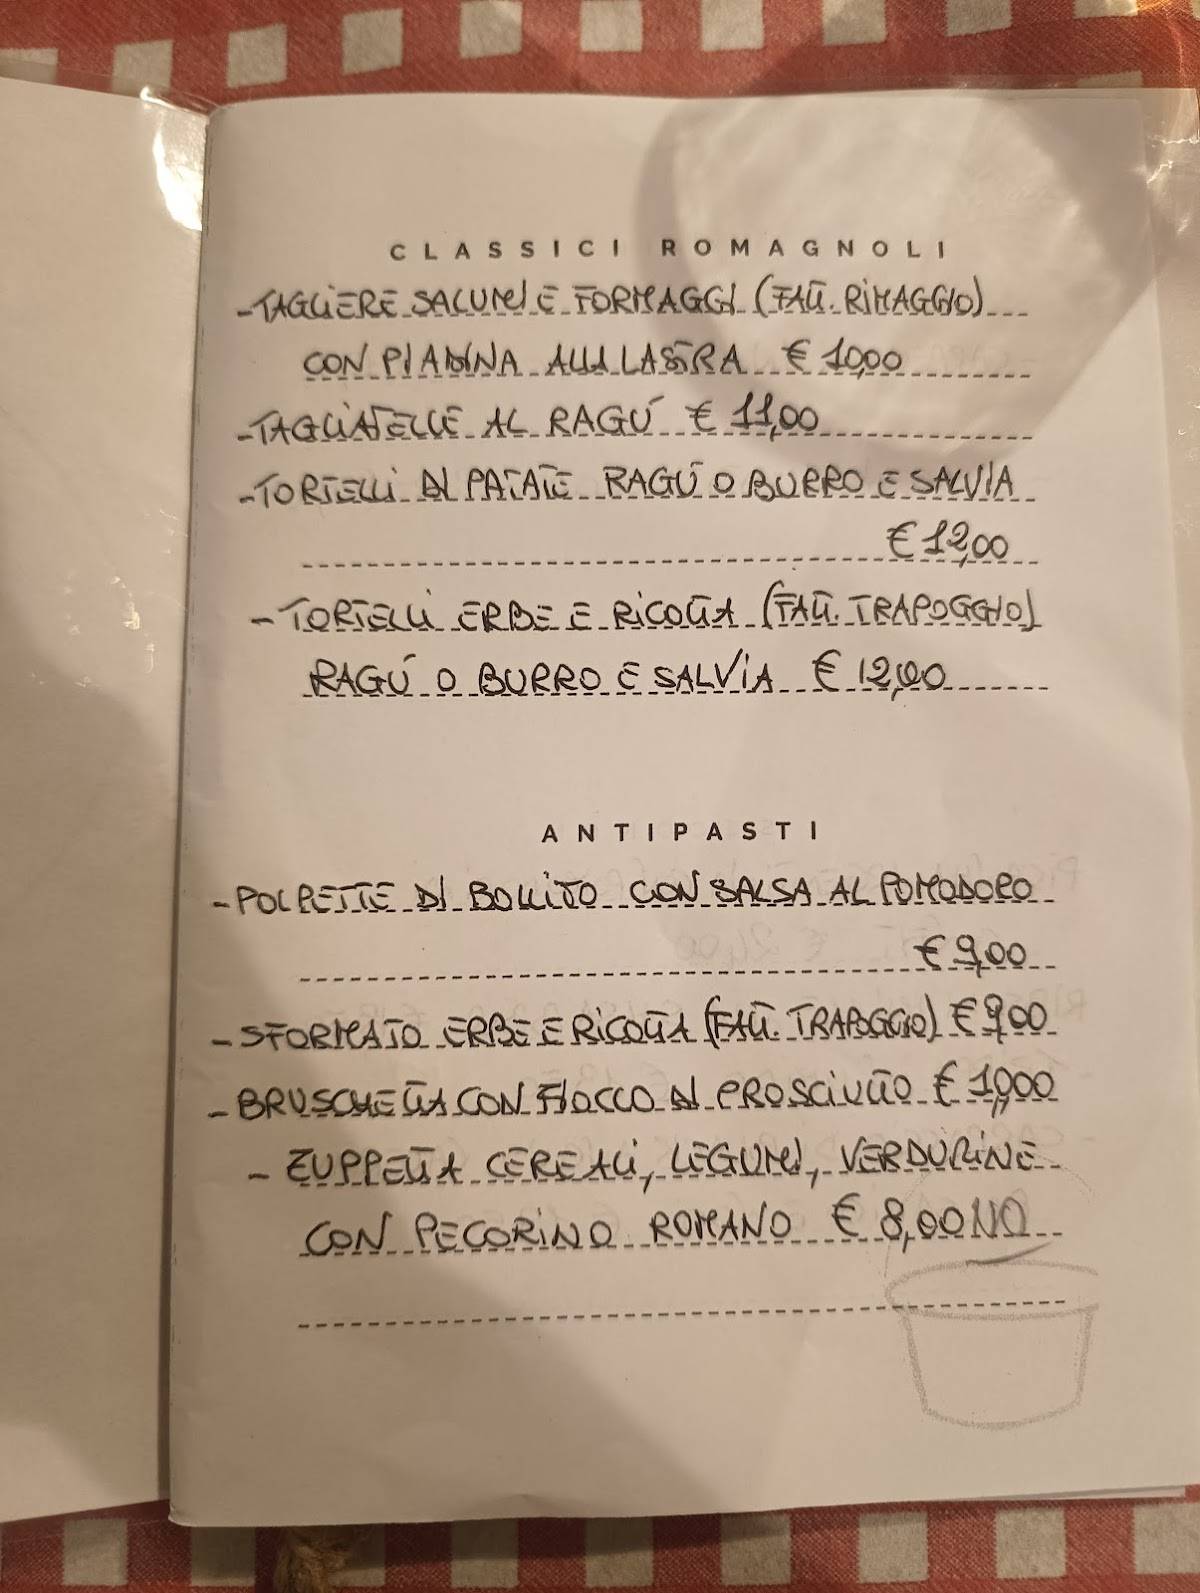 CLASSICI ROMAGNOLI
- TAGLIERE SALUMI E FORMAGGI (FATT. RIMAGGIO)
CON PIADINA ALLA LASTRA € 10,00
- TAGLIATELLE AL RAGÚ € 11,00
- TORTELLI DI PATATE RAGÚ O BURRO E SALVIA
€ 12,00
- TORTELLI ERBE E RICOTTA (FATT. TRAPOGGIO)
RAGÚ O BURRO E SALVIA € 12,00
ANTIPASTI
- POLPETTE DI BOLLITO CON SALSA AL POMODORO
€ 9,00
- SFORMATO ERBE E RICOTTA (FATT. TRAPOGGIO) € 9,00
- BRUSCHETTA CON FIOCCO DI PROSCIUTTO € 10,00
- ZUPPETTA CEREALI, LEGUMI, VERDURINE
CON PECORINO ROMANO € 8,00 NO